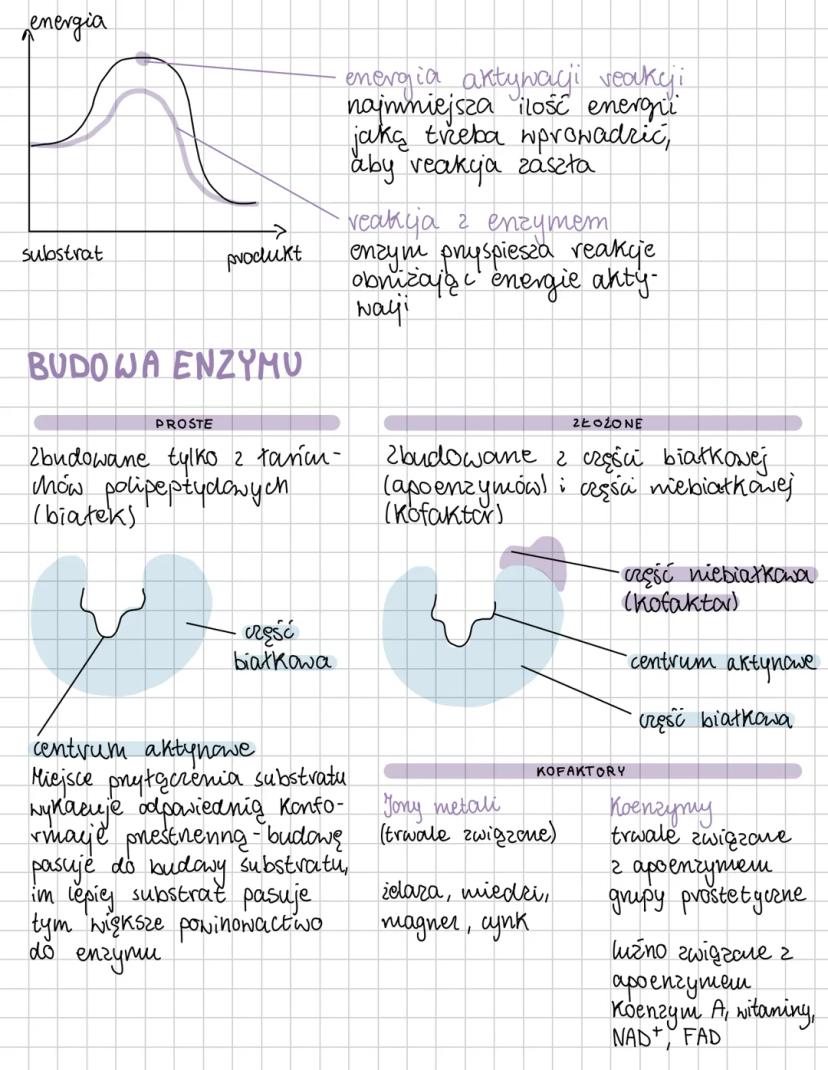 energia
energia aktywacji reakcji
najmniejsza ilość energii
jaką trzeba wprowadzić,
aby reakcja zaszła
reakcja z enzymem
enzym przyspiesza reakcje
obniżając energie akty-
wacji
substrat
produkt
BUDOWA ENZYMU
PROSTE
Zbudowane tylko z łańcu-
chów polipeptydowych
(białek)
część
białkowa
centrum aktynowe
Miejsce przyłączenia substratu
wykazuje odpowiednią konfo-
rmację przestrzenną - budowę
pasuje do budowy substratu,
im lepiej substrat pasuje
tym większe powinowactwo
do enzymu
ZŁOŻONE
Zbudowane z części białkowej
(apoenzymów) i części niebiałkowej
(kofaktor)
część niebiałkowa
(kofaktor)
centrum aktynowe
część białkowa
KOFAKTORY
Jony metali
(trwale związone)
żelaza, miedzi,
magnez, cynk
Koenzymy
trwale związone
z apoenzymem
grupy prostetyczne
luźno związone z
apoenzymem
Koenzym A, witaminy,
NAD⁺, FAD